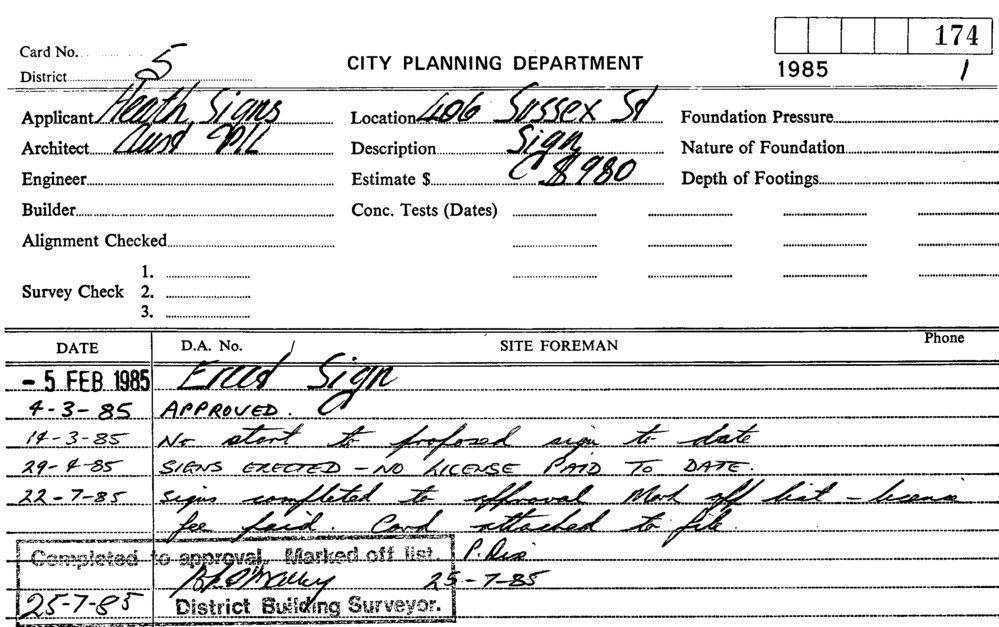 174
Card No. 5
CITY PLANNING DEPARTMENT
District
1985 1
Applicant Heath Signs Location 406 Sussex St Foundation Pressure
Architect Aust P/L Description Sign Nature of Foundation
Engineer Estimate $ C $980 Depth of Footings
Builder Conc. Tests (Dates)
Alignment Checked
1.
Survey Check 2.
3.
DATE D.A. No. SITE FOREMAN Phone
- 5 FEB 1985 Erect Sign
4-3-85 APPROVED.
14-3-85 No start to proposed sign to date
29-4-85 SIGNS ERECTED - NO LICENSE PAID TO DATE.
22-7-85 Signs completed to approval Mark off list - license
fee paid. Card attached to file.
Completed to approval. Marked off list. P. Dix
25-7-85
25-7-85 District Building Surveyor.